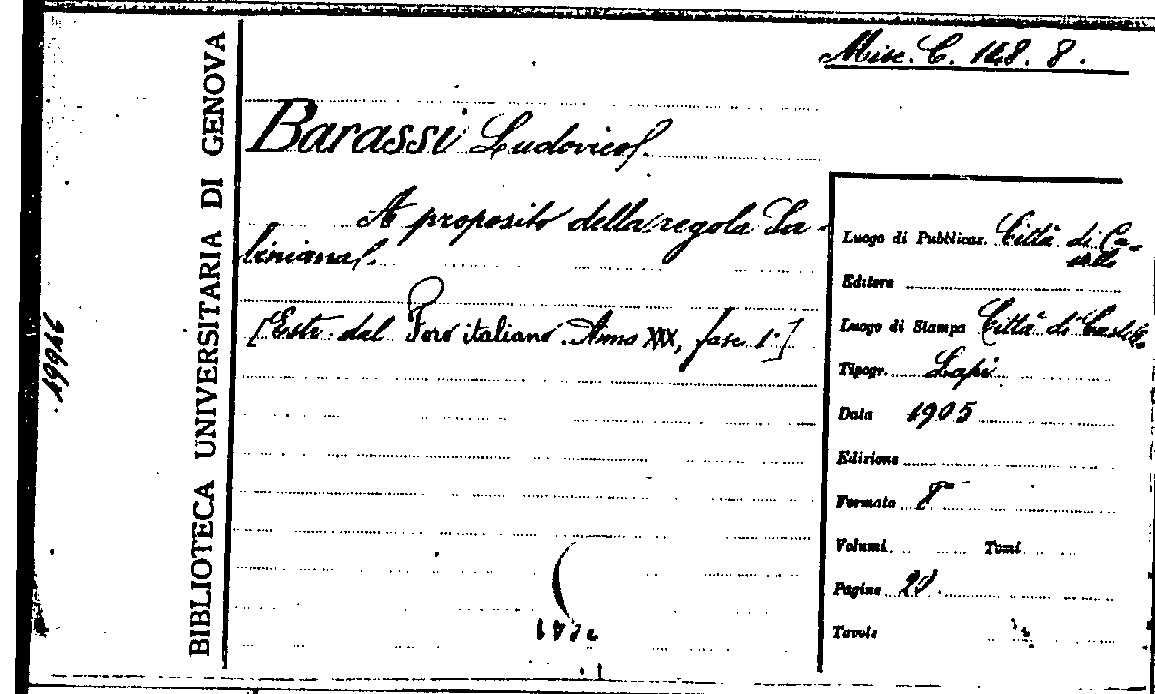 Misc. C. 148. 8.
BIBLIOTECA UNIVERSITARIA DI GENOVA
Barassi Ludovico.
A proposito della regola Sa-
liniana.
[Estr. dal Foro italiano. Anno XXX, fasc. 1°]
Luogo di Pubblicaz. Città di Ca-
stello
Editore
Luogo di Stampa Città di Castello
Tipogr. Lapi
Data 1905
Edizione
Formato 8°
Volumi Tomi
Pagine 20.
Tavole